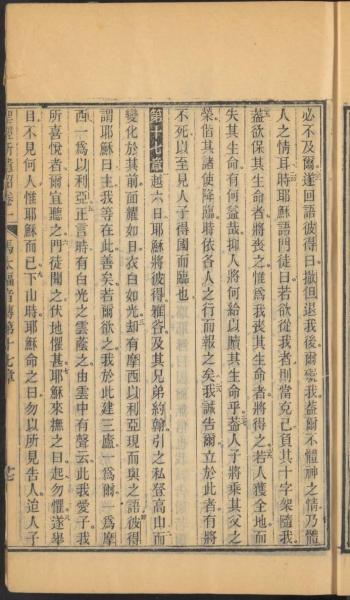 必不及爾遂回語彼得曰撒但退我後爾礙我蓋爾不體神之情乃體
人之情耳時耶穌語門徒曰若欲從我者則當克己負其十字架隨我
蓋欲保其生命者將喪之惟爲我喪其生命者將得之若人獲全地而
失其生命有何益哉抑人將何給以贖其生命乎蓋人子將乘其父之
榮偕其諸使降臨時依各人之行而報之矣我誠告爾立於此者有將
不死以至見人子得國而臨也
第十七章越六日耶穌將彼得雅各及其兄弟約翰引之私登高山而
變化於其前面耀如日衣白如光却有摩西以利亞現而與之語彼得
謂耶穌曰主我等在此善矣若爾欲之我於此建三廬一爲爾一爲摩
西一爲以利亞正言時有白光之雲蓋之由雲中有聲云此我愛子我
所喜悅者爾宜聽之門徒聞之伏地懼甚耶穌來撫之曰起勿懼遂舉
目不見何人惟耶穌而已下山時耶穌命之曰勿以所見告人迨人子
馬太福音傳第十七章